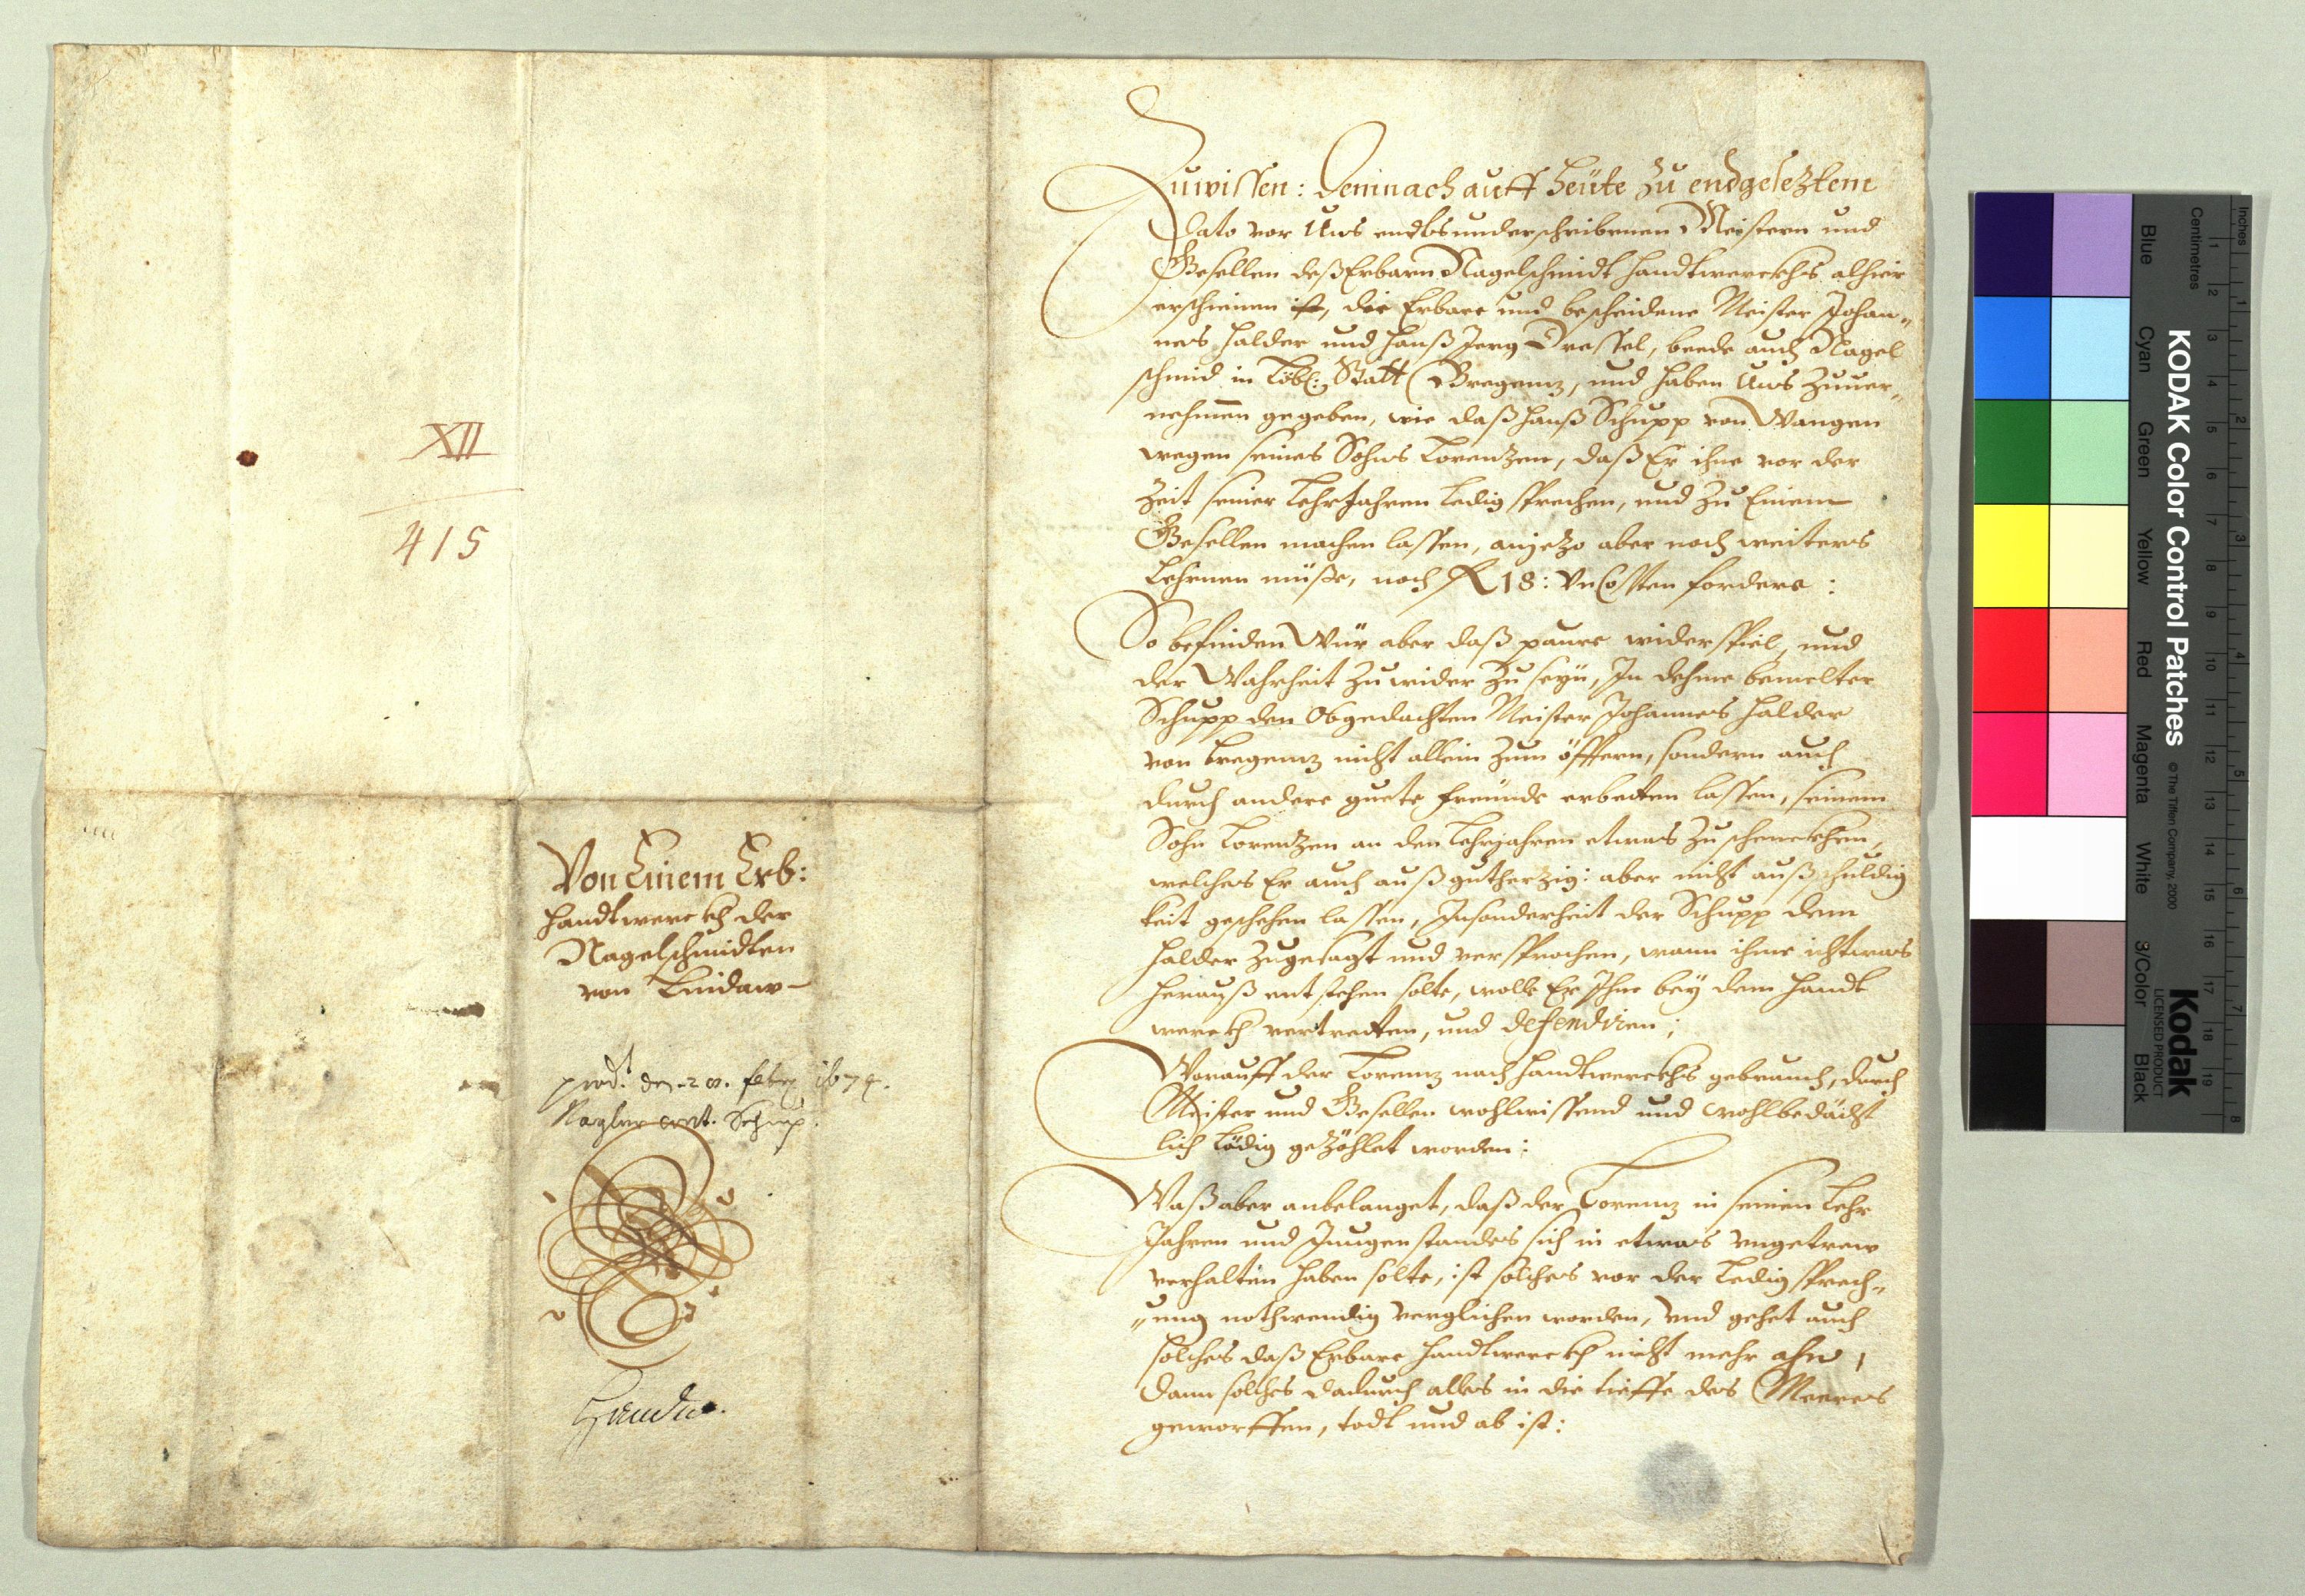 XII
415
Von Einem Erb:
Handtwerckh der
Nagelschmidten
von Lindaw
prod. den 28. febr. 1674.
Nagler cont. Schup.
Zuwissen: Demnach auff Heüte zu endgeseztem
Dato vor Uns endtsunderschribenen Meistern und
Gesellen deß Erbarn Nagelschmidt Handtwerckhs alhier
erschienen ist, die Erbare und bescheidene Meister Johan„
nes Halder und Hanß Jerg Dressel, beede auch Nagel
schmid in Löbl: Statt Bregenz, und haben Uns zuuer„
nehmen gegeben, wie daß Hanß Schupp von Wangen
wegen seines Sohns Lorenzen, daß Er ihne vor der
Zeit seiner Lehr Jahren ledig sprechen, und zu Einem
Gesellen machen lassen, anjezo aber noch weiters
Lehrnen müße, noch fl 18: VnCosten fordere:
So befinden Wür aber daß paure widerspiel, und
der Wahrheit zuwider zu seyn, In dehme bemelter
Schupp den Obgedachten Meister Johannes Halder
von Bregenz nicht allein zum öfftern, sondern auch
durch andere guete freünde erbetten lassen, seinem
Sohn Lorenzen an den Lehrjahren etwas zu schenckhen,
welches Er auch auß gutherzig: aber nicht auß schuldig
keit geschehen lassen, Insonderheit der Schupp dem
Halder zugesagt und versprochen, wann ihme ichtwas
herauß entstehen solte, wolle Er Ihne bey dem Handt
werckh vertretten, und defendiren;
Worauff der Lorenz nach Handtwerckhs gebrauch, durch
Meister und Gesellen wohlwissend und wohlbedächt
lich Lödig gezöhlet worden:
Waß aber anbelanget, daß der Lorenz in seinen Lehr
Jahren und Jungenstandes sich in etwas vngetrew
verhalten haben solte, ist solches vor der Ledig sprech„
„ung nothwendig verglichen worden, Vnd gehet auch
solches daß Erbare Handtwerckh nicht mehr ahn,
Dann solches dadurch alles in die tieffe des Meeres
geworffen, todt und ab ist:
Inches
Centimetres
1 2 3 4 5 6 7 8 9 10 11 12 13 14 15 16 17 18 19
1 2 3 4 5 6 7 8
KODAK Color Control Patches
© The Tiffen Company, 2000
Kodak
LICENSED PRODUCT
Blue
Cyan
Green
Yellow
Red
Magenta
White
3/Color
Black